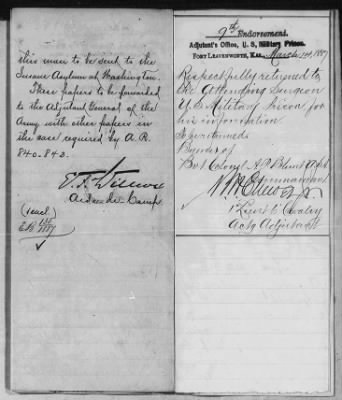 this man to be sent to the
Insane Asylum at Washington.
These papers to be forwarded
to the Adjutant General of the
Army with other papers in
the case required by A.R.
840-843.
Aide-de-Camp
(1 encl.)
9th Endorsement.
Adjutant's Office, U. S. Military Prison,
FORT LEAVENWORTH, KAS., March 14th, 1887
Respectfully returned to
the Attending Surgeon
U.S. Military Prison for
his information.
To be returned.
By order of
Bvt Colonel A.P. Blunt
Commandant
1st Lieut Cavalry
Actg Adjutant